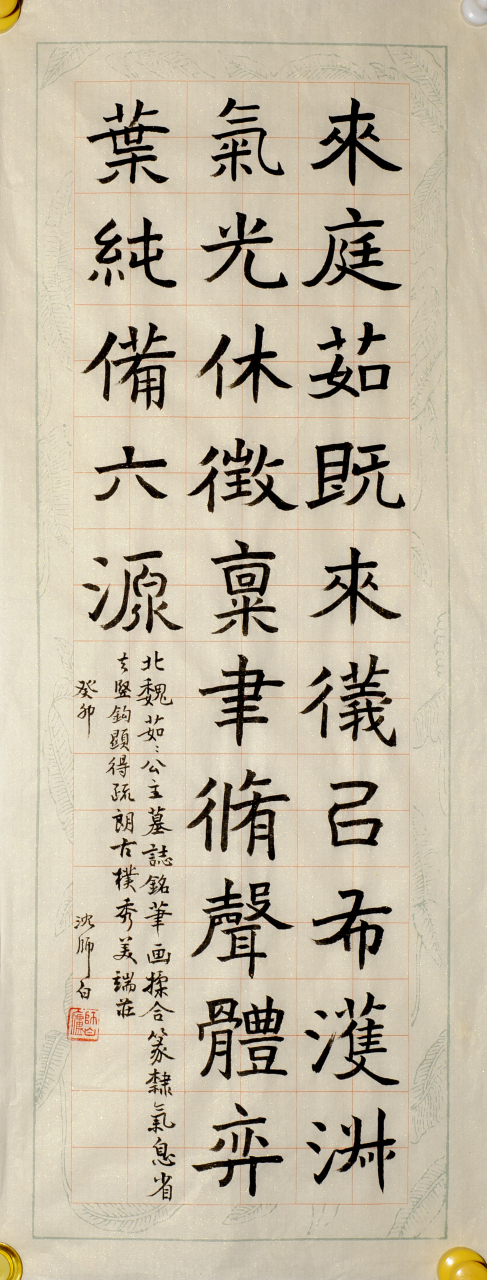 來庭茹既來儀㠯布濩淑
氣光休徵稟聿脩聲體弈
葉純備六源
北魏茹〻公主墓誌銘筆画揉合篆隸氣息省
去竪鈎顯得疏朗古樸秀美端莊
癸卯 沈師白